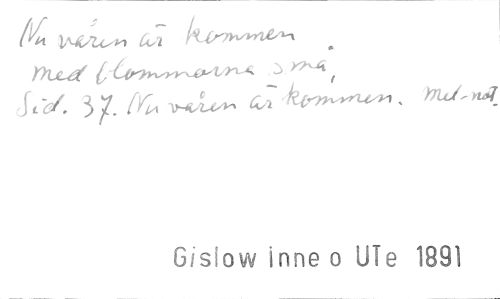 Nu våren är kommen
med blommorna små,
Sid. 37. Nu våren är kommen. Mel-not.
Gislow Inne o UTe 1891